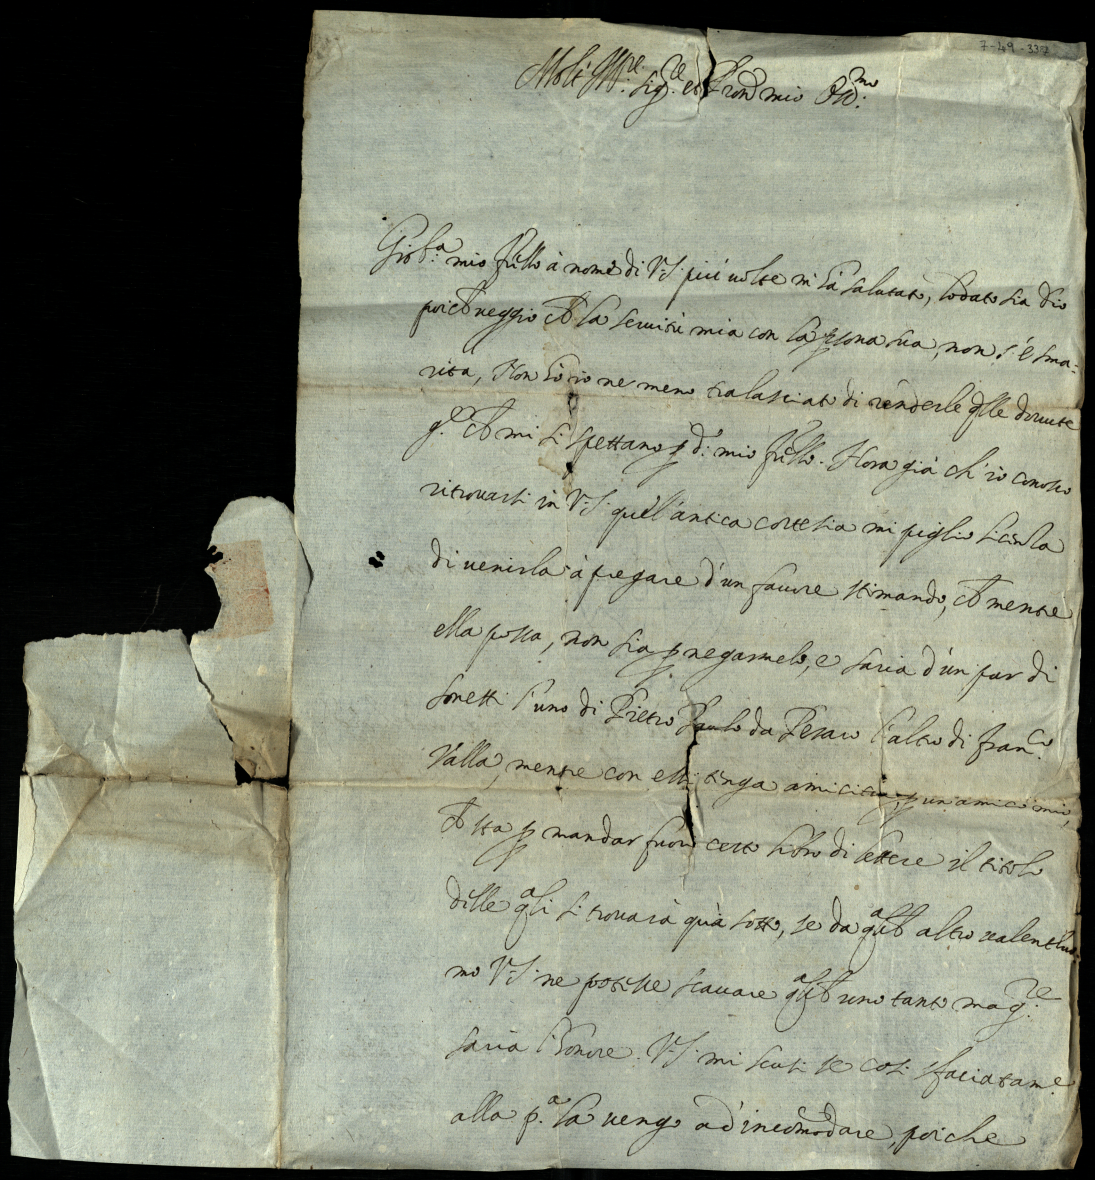 7-49-337
Molt' Ill.re Sig.re et Pron mio Oss.mo
Gio: B.a mio fr̃ello à nome di V.S. più uolte m' hà salutato, lodato sia Dio
poiche ueggio che la seruitù mia con la psona sua, non s' è sma=
rita, Non hò io ne meno tralasciato di renderle q̃lle douute
g.e che mi si spettano p d.o mio fr̃ello. Hora già ch' io conosco
ritrouarsi in V.S. quell' antica cortesia mi piglio sicurtà
di uenirla à pregare d'un fauore stimando, che mentre
ella possa, non sia p negarmelo, e saria d'un par di
sonetti l'uno di Pietro Paulo da Pesaro l'altro di Fran.co
Valla, mentre con essi tenga amicitia, p un amico mio,
che sta p mandar fuori certo libro di lettere il titolo
delle q.ali si trouarà quà sotto, se da q.alch' altro ualent'huo
mo V.S. ne potesse scauare q.alch' uno tanto mag.re
saria l'honore. V.S. mi scusi se così sfaciatam.e
alla p.a la uengo ad' incomodare, poiche